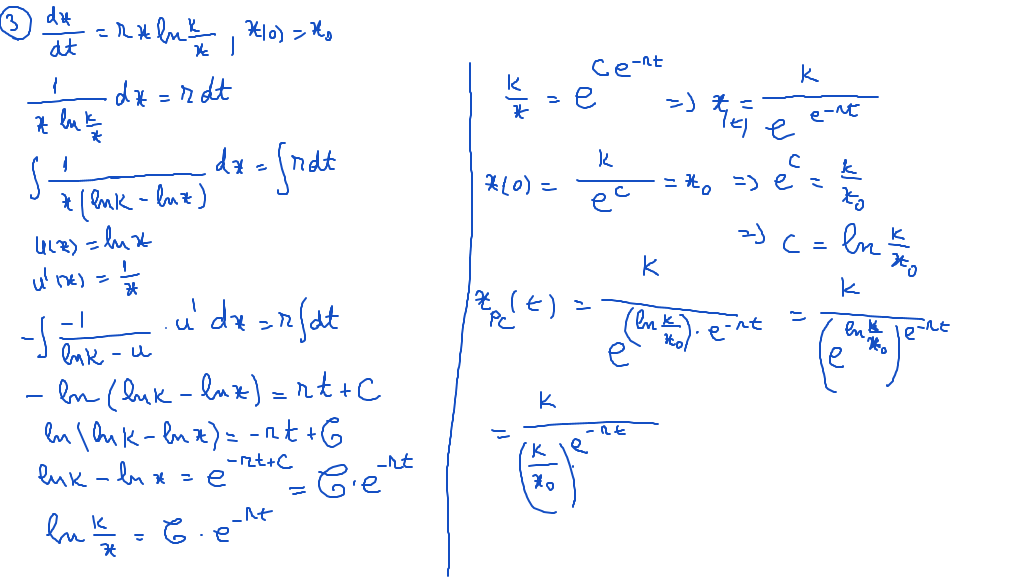 ③ dx/dt = r x ln K/x , x(0) = x₀
1/(x ln K/x) dx = r dt
∫ 1/(x(lnK - lnx)) dx = ∫ r dt
u(x) = ln x
u'(x) = 1/x
-∫ -1/(lnK - u) · u' dx = r ∫ dt
- ln (lnK - lnx) = r t + C
ln (lnK - lnx) = -r t + C
lnK - ln x = e^(-rt+C) = C · e^(-rt)
ln K/x = C · e^(-rt)
K/x = e^(C e^(-rt)) => x(t) = K/e^(e^(-rt))
x(0) = K/e^C = x₀ => e^C = K/x₀
=> C = ln K/x₀
x_PC(t) = K/e^((ln K/x₀) · e^(-rt)) = K/(e^(ln K/x₀))^(e^(-rt))
= K/(K/x₀)^(e^(-rt))